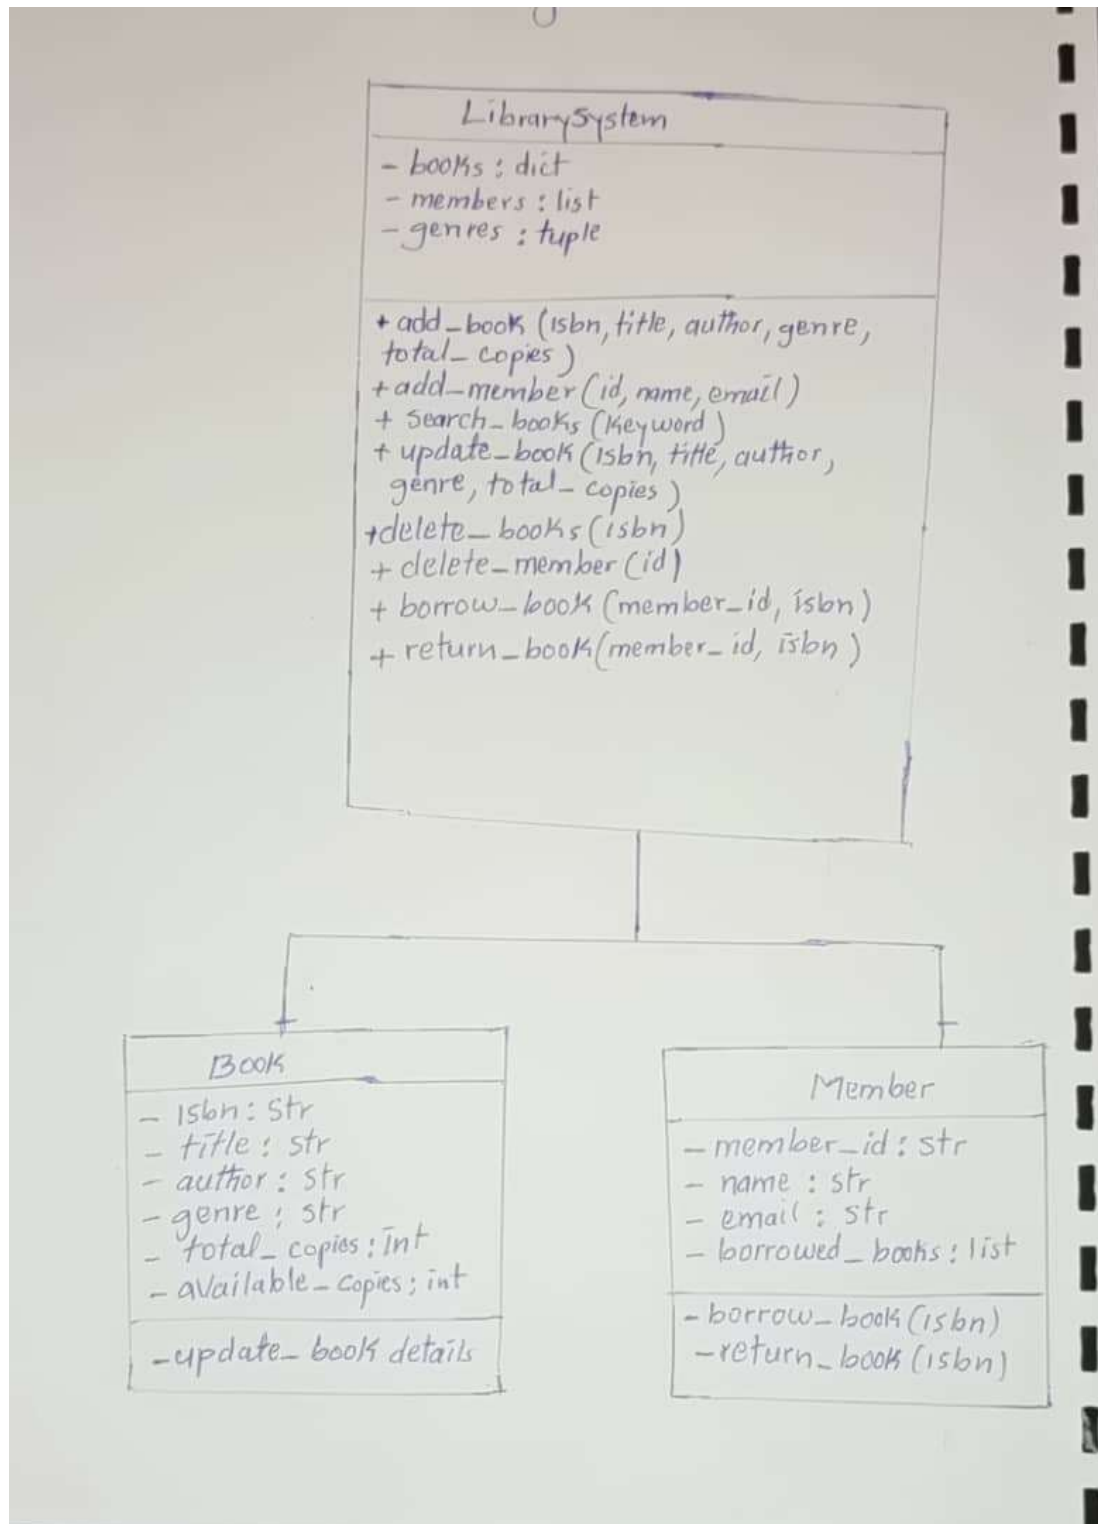 LibrarySystem
- books : dict
- members : list
- genres : tuple
+ add_book (isbn, title, author, genre,
total_copies)
+ add_member (id, name, email)
+ search_books (keyword)
+ update_book (isbn, title, author,
genre, total_copies)
+ delete_books (isbn)
+ delete_member (id)
+ borrow_book (member_id, isbn)
+ return_book (member_id, isbn)
Book
- isbn : str
- title : str
- author : str
- genre : str
- total_copies : int
- available_copies : int
- update_book details
Member
- member_id : str
- name : str
- email : str
- borrowed_books : list
- borrow_book (isbn)
- return_book (isbn)